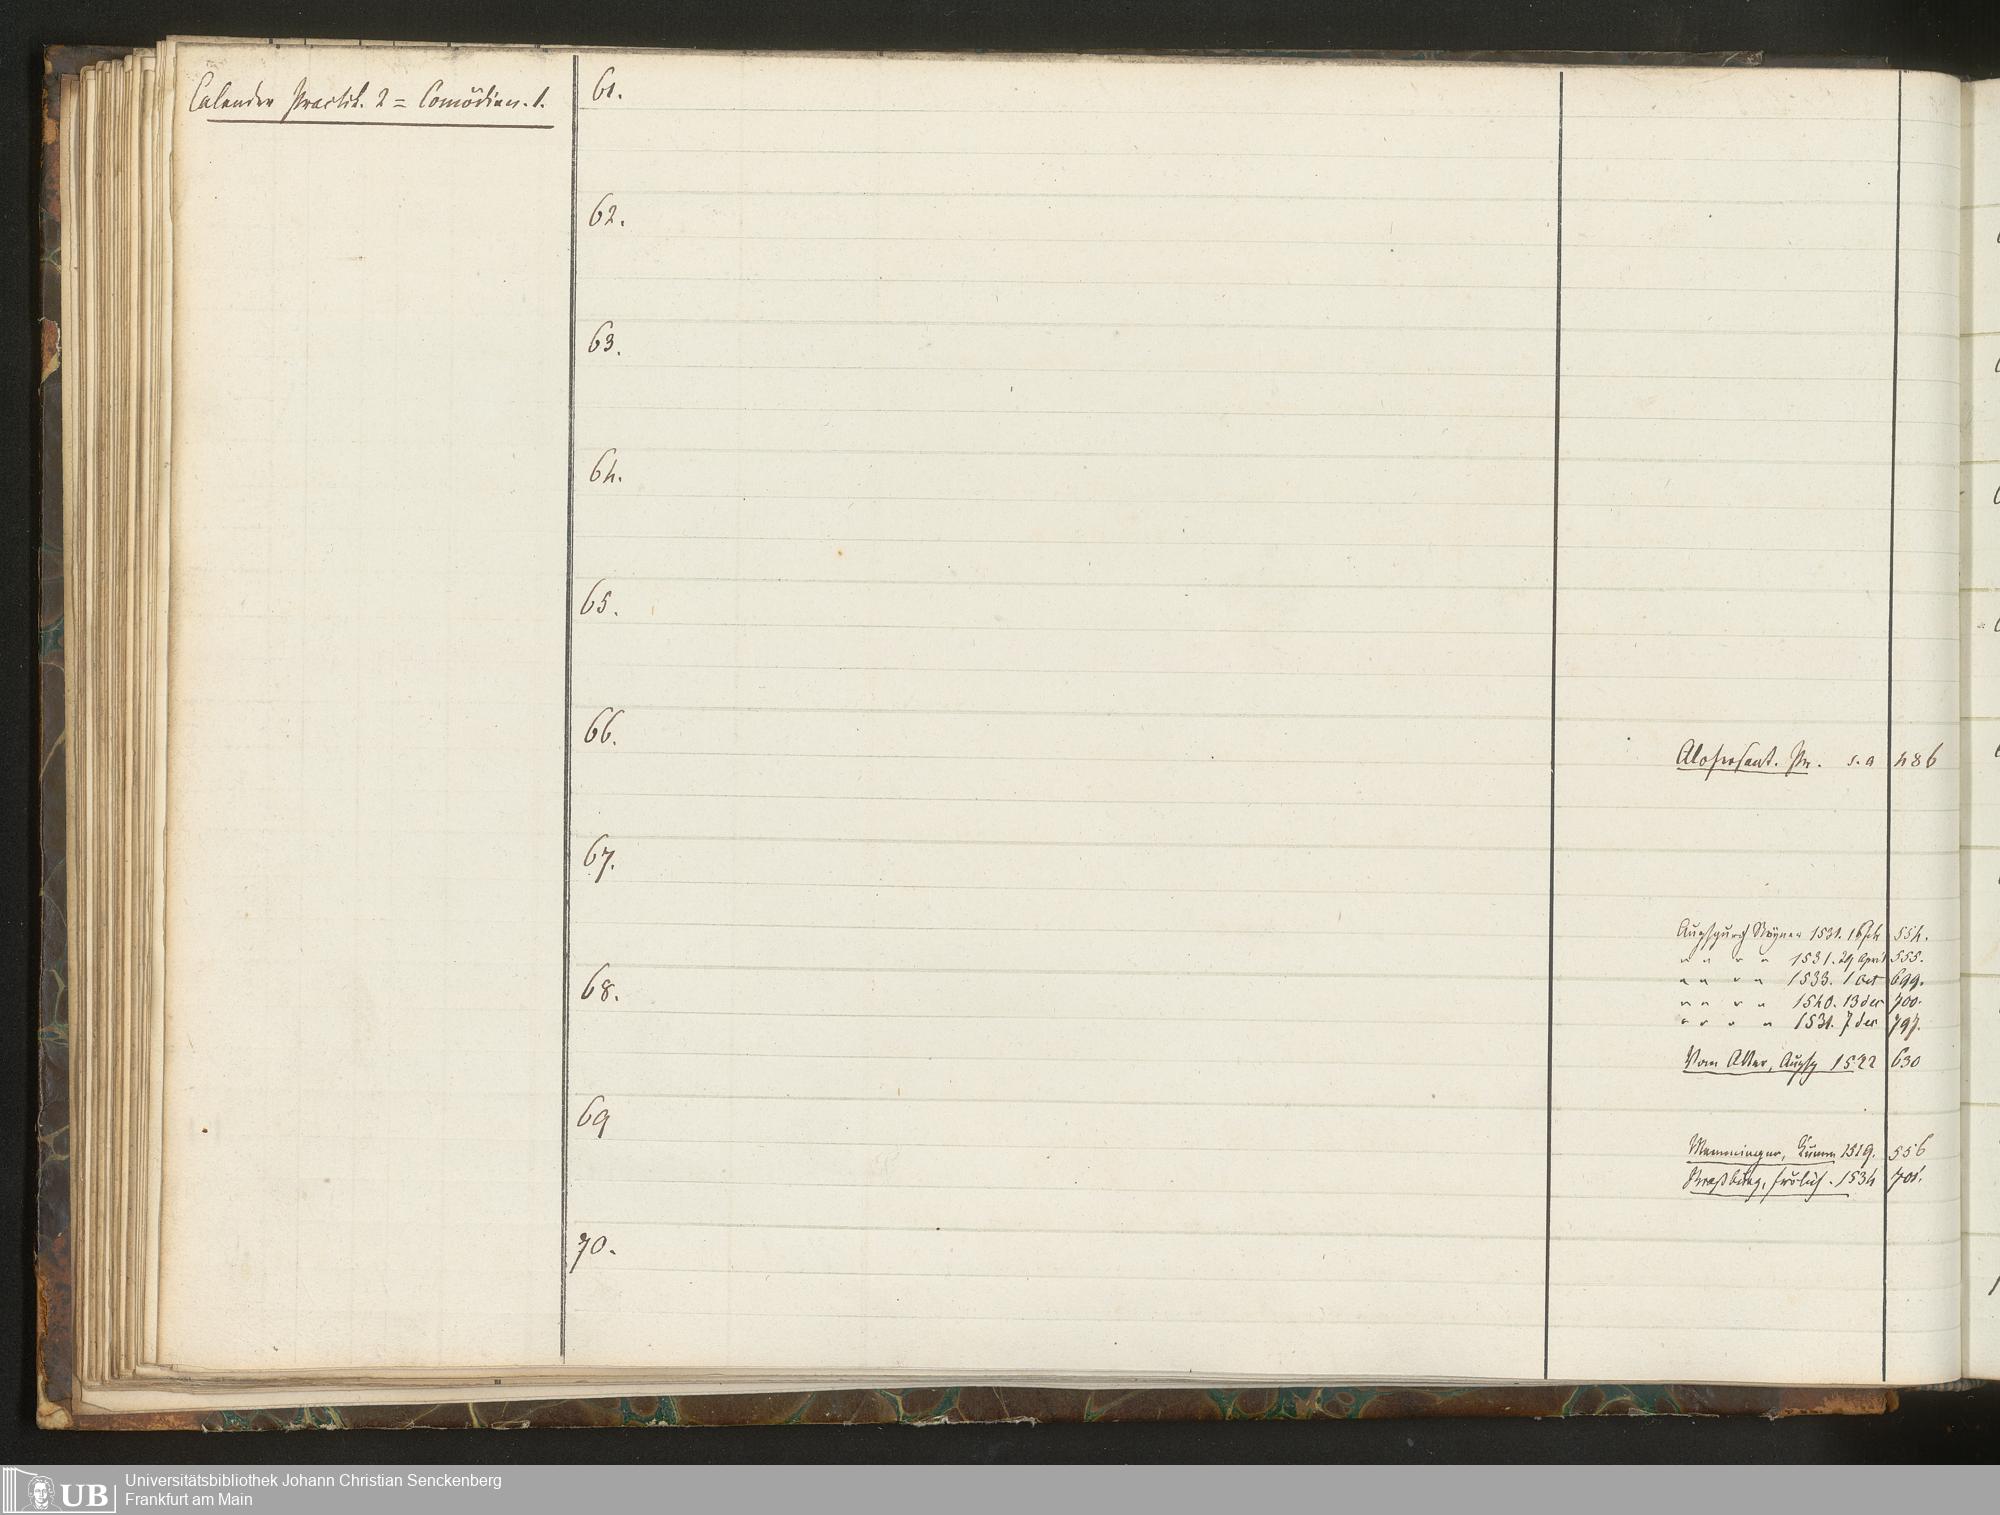 Calender Practik. 2 = Comödien. 1.
61.
62.
63.
64.
65.
66.
s. a 486
67.
Augspurg 1531. 554.
" " " " 1531. 29 April 555.
68.
" " " " 1533. 1 Oct 699.
" " " " 1540. 13 dec 700.
" " " " 1531. 7 dec 797.
Vom Alter, Augsp 1522 630
69
Memmingen, 1519. 556
Straßburg, frölich. 1534 701.
70.
UB
Universitätsbibliothek Johann Christian Senckenberg
Frankfurt am Main